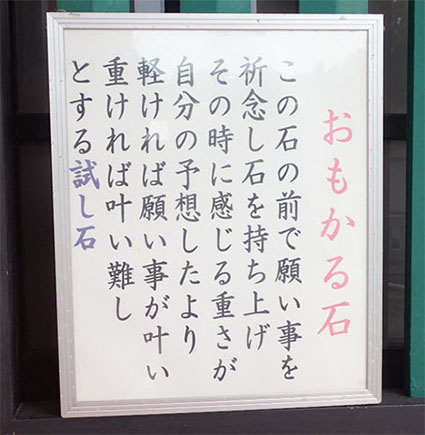 おもかる石
この石の前で願い事を
祈念し石を持ち上げ
その時に感じる重さが
自分の予想したより
軽ければ願い事が叶い
重ければ叶い難し
とする試し石